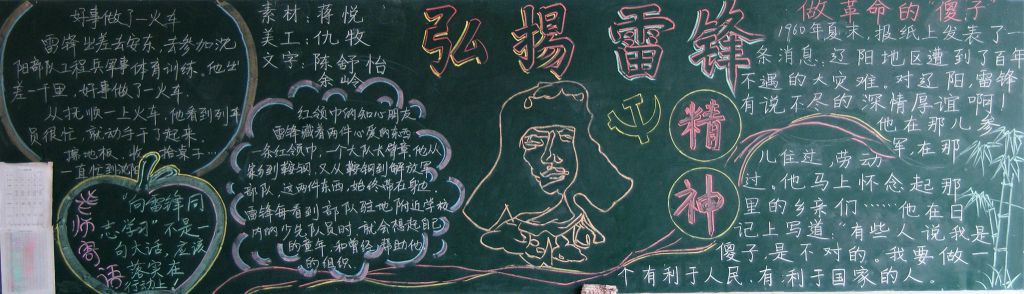 好事做了一火车
雷锋出差去安东,去参加沈
阳部队工程兵军事体育训练。他出
差一千里,好事做了一火车
从抚顺一上火车,他看到列车
员很忙,就动手干了起来,
擦地板,
一直忙到沈阳
老师寄语
"向雷锋同
志学习"不是一
句大话,应该
落实在
行动上!
素材:蒋悦
美工:仇牧
文字:陈舒怡
余岭
红领巾的知心朋友
雷锋藏着两件心爱的东西
一条红领巾,一个大队长臂章,他从
家乡到鞍钢,又从鞍钢到解放军
部队,这两件东西,始终带在身边,
雷锋每看到部队驻地附近学校
内的少先队员时,就会想起自己
的童年,和曾经帮助他
的组织
弘揚雷锋
精
神
做革命的"傻子"
1960年夏末,报纸上发表了一
条消息:辽阳地区遭到了百年
不遇的大灾难。对辽阳,雷锋
有说不尽的深情厚谊啊!
他在那儿参
军,在那
儿住过,劳动
过。他马上怀念起那
里的乡亲们……他在日
记上写道:"有些人说我是
傻子,是不对的。我要做一
个有利于人民,有利于国家的人。